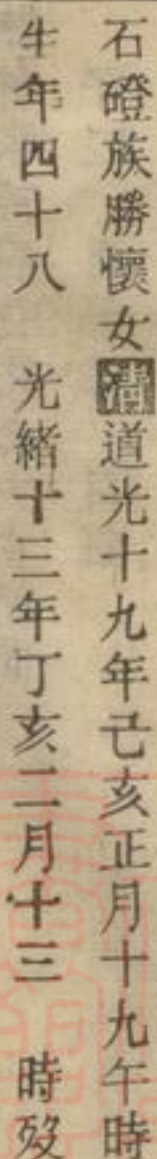 石磴族勝懷女清道光十九年己亥正月十九午時
生年四十八 光緒十三年丁亥二月十三 時歿